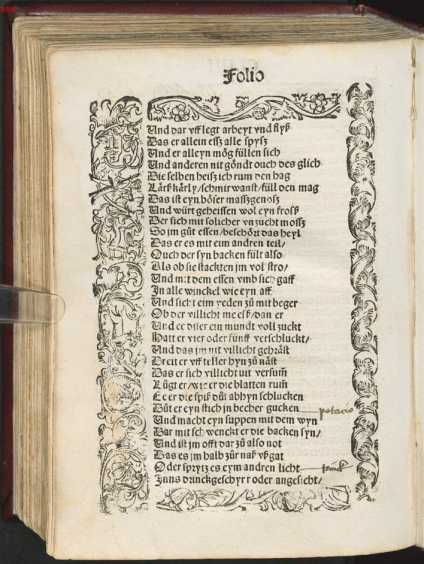 Folio
Vnd dar vff legt arbeyt vnd flyß
Das er allein eſſz alle ſpyſz
Vnd er alleyn mög füllen ſich
Vnd anderen nit göndt ouch des glich
Die ſelben heiſz ich rum den hag
Lärß kärly/ſchmirwanſt/füll den mag
Das iſt eyn böſer maſſzgenoſz
Vnd würt geheiſſen wol eyn froſß
Der ſich mit ſolicher vnzucht moſſz
So im güt eſſen/beſchört das heyl
Das er es mit eim andren teil/
Ouch der ſyn backen fült alſo
Als ob ſie ſtackten im vol ſtro/
Vnd mit dem eſſen vmb ſich gaff
In alle winckel wie eyn aff
Vnd ſicht eim yeden zů mit beger
Ob der villicht me eſß/dan er
Vnd ee diſer ein mundt voll zuckt
Hatt er vier oder fünff verſchluckt/
Vnd das im nit villicht gebräſt
Dreit er vff teller hyn zů näſt
Das er ſich villicht nit verſum
Lůgt er/wie er die blatten rum
Ee er die ſpiß důt abhyn ſchlucken
Důt er eyn ſtich jn becher gucken
potatio
Vnd macht eyn ſuppen mit dem wyn
Dar mit ſchwenckt er die backen ſyn/
Vnd iſt im offt dar zů alſo not
Das es im halb zůr naß vß gat
Oder ſprytzt es eym andren licht
Inns drinckgeſchyrr oder angeſicht/